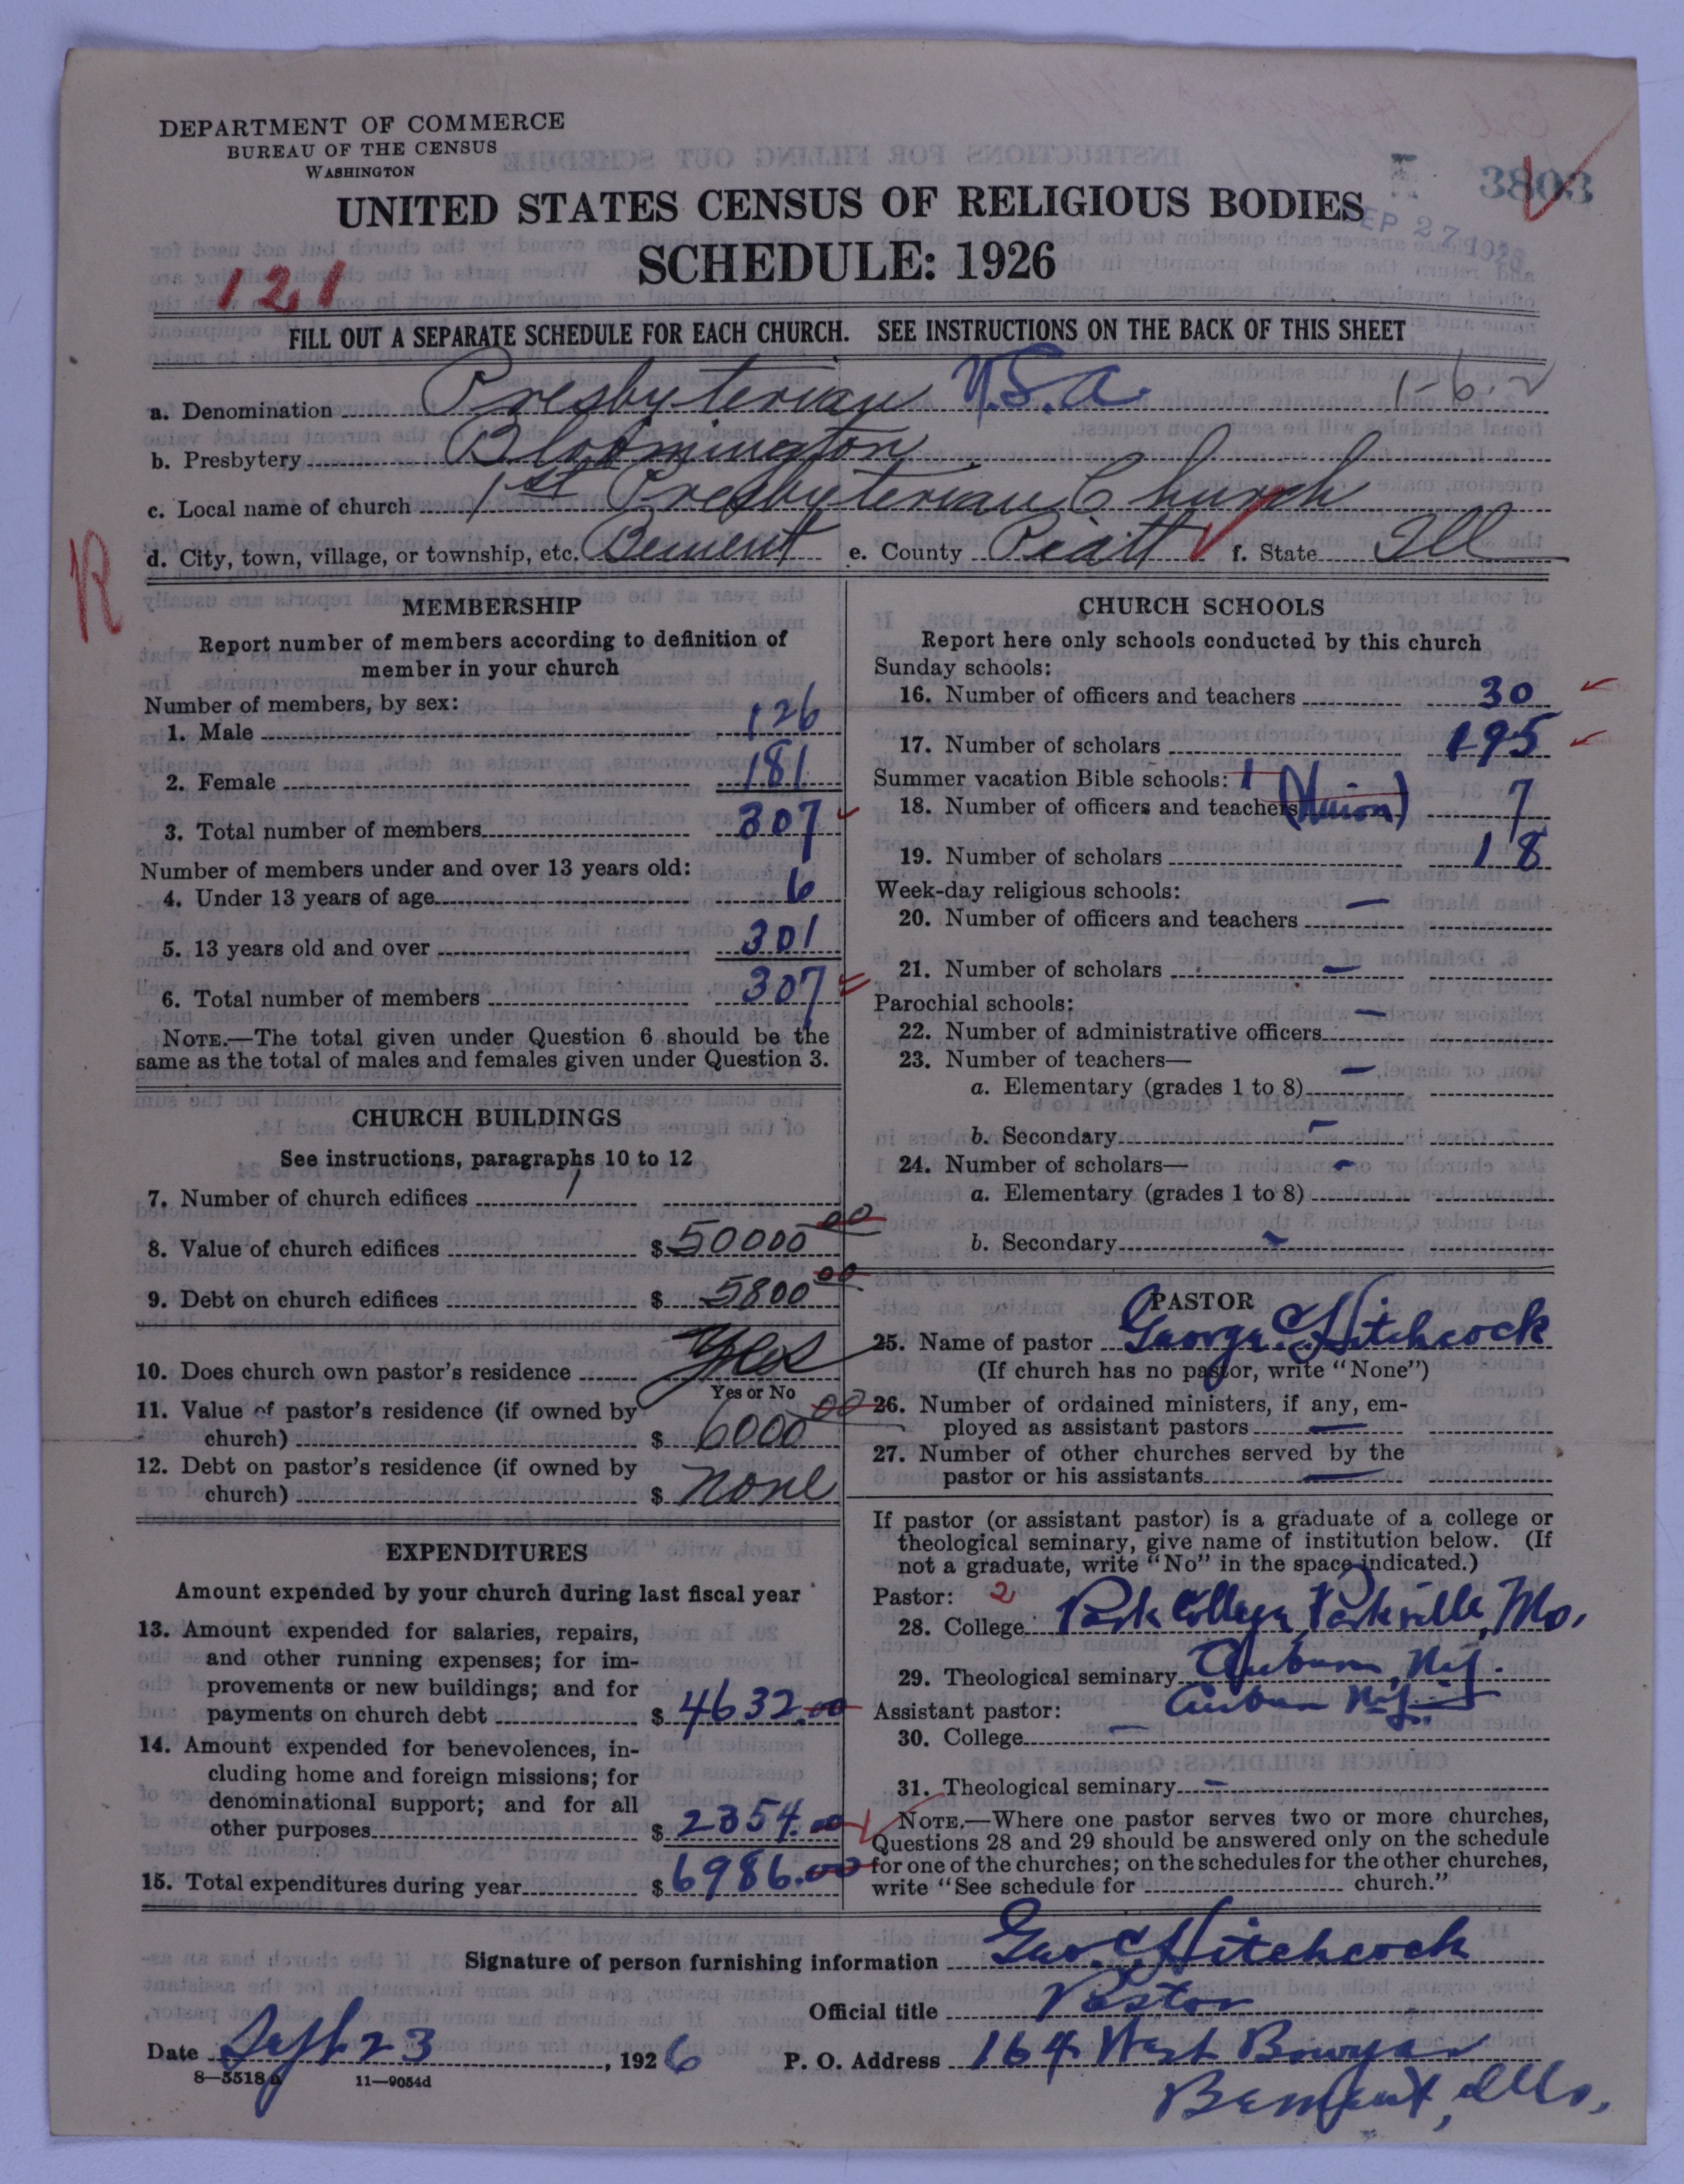 DEPARTMENT OF COMMERCE
BUREAU OF THE CENSUS
WASHINGTON
3803
UNITED STATES CENSUS OF RELIGIOUS BODIES
SEP 27 1926
SCHEDULE: 1926
121
FILL OUT A SEPARATE SCHEDULE FOR EACH CHURCH. SEE INSTRUCTIONS ON THE BACK OF THIS SHEET
a. Denomination Presbyterian U.S.A. 1-6-2
b. Presbytery Bloomington
c. Local name of church 1st Presbyterian Church
d. City, town, village, or township, etc. Bement e. County Piatt f. State Ill
R
MEMBERSHIP
Report number of members according to definition of
member in your church
Number of members, by sex:
1. Male 126
2. Female 181
3. Total number of members 307
Number of members under and over 13 years old:
4. Under 13 years of age 6
5. 13 years old and over 301
6. Total number of members 307
NOTE.—The total given under Question 6 should be the
same as the total of males and females given under Question 3.
CHURCH BUILDINGS
See instructions, paragraphs 10 to 12
7. Number of church edifices 1
8. Value of church edifices $ 50000 00
9. Debt on church edifices $ 5800 00
10. Does church own pastor's residence Yes
Yes or No
11. Value of pastor's residence (if owned by
church) $ 6000 00
12. Debt on pastor's residence (if owned by
church) $ none
EXPENDITURES
Amount expended by your church during last fiscal year
13. Amount expended for salaries, repairs,
and other running expenses; for im-
provements or new buildings; and for
payments on church debt $ 4632.00
14. Amount expended for benevolences, in-
cluding home and foreign missions; for
denominational support; and for all
other purposes $ 2354.00
15. Total expenditures during year $ 6986.00
CHURCH SCHOOLS
Report here only schools conducted by this church
Sunday schools:
16. Number of officers and teachers 30
17. Number of scholars 195
Summer vacation Bible schools: 1
18. Number of officers and teachers (Union) 7
19. Number of scholars 18
Week-day religious schools:
20. Number of officers and teachers —
21. Number of scholars —
Parochial schools:
22. Number of administrative officers —
23. Number of teachers—
a. Elementary (grades 1 to 8) —
b. Secondary —
24. Number of scholars—
a. Elementary (grades 1 to 8) —
b. Secondary —
PASTOR
25. Name of pastor George C. Hitchcock
(If church has no pastor, write "None")
26. Number of ordained ministers, if any, em-
ployed as assistant pastors —
27. Number of other churches served by the
pastor or his assistants —
If pastor (or assistant pastor) is a graduate of a college or
theological seminary, give name of institution below. (If
not a graduate, write "No" in the space indicated.)
Pastor: 2
28. College Park College, Parkville, Mo.
29. Theological seminary Auburn, N.Y.
Auburn N.Y.
Assistant pastor:
30. College —
31. Theological seminary —
NOTE.—Where one pastor serves two or more churches,
Questions 28 and 29 should be answered only on the schedule
for one of the churches; on the schedules for the other churches,
write "See schedule for church."
Signature of person furnishing information Geo. C. Hitchcock
Official title Pastor
Date Sept 23, 1926 P. O. Address 164 West Bowyer
8—5518a 11—9054d
Bement, Ills.